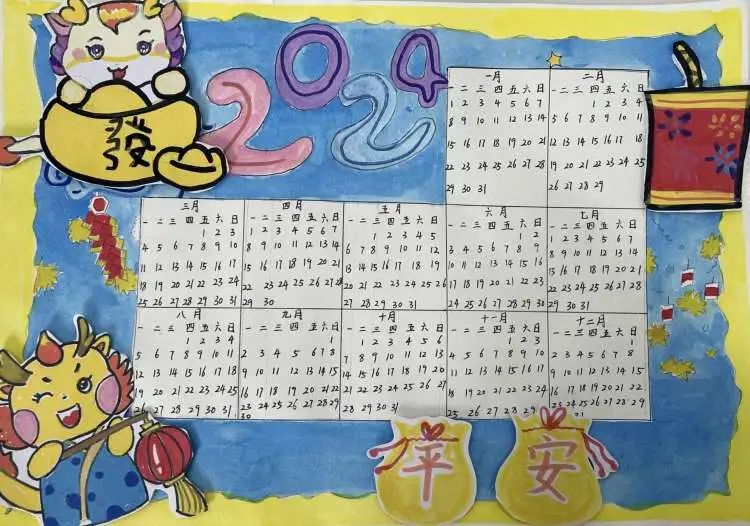 2024
發
一月
一 二 三 四 五 六 日
1 2 3 4 5 6 7
8 9 10 11 12 13 14
15 16 17 18 19 20 21
22 23 24 25 26 27 28
29 30 31
二月
一 二 三 四 五 六 日
1 2 3 4
5 6 7 8 9 10 11
12 13 14 15 16 17 18
19 20 21 22 23 24 25
26 27 28 29
三月
一 二 三 四 五 六 日
1 2 3
4 5 6 7 8 9 10
11 12 13 14 15 16 17
18 19 20 21 22 23 24
25 26 27 28 29 30 31
四月
一 二 三 四 五 六 日
1 2 3 4 5 6 7
8 9 10 11 12 13 14
15 16 17 18 19 20 21
22 23 24 25 26 27 28
29 30
五月
一 二 三 四 五 六 日
1 2 3 4 5
6 7 8 9 10 11 12
13 14 15 16 17 18 19
20 21 22 23 24 25 26
27 28 29 30 31
六月
一 二 三 四 五 六 日
1 2
3 4 5 6 7 8 9
10 11 12 13 14 15 16
17 18 19 20 21 22 23
24 25 26 27 28 29 30
七月
一 二 三 四 五 六 日
1 2 3 4 5 6 7
8 9 10 11 12 13 14
15 16 17 18 19 20 21
22 23 24 25 26 27 28
29 30 31
八月
一 二 三 四 五 六 日
1 2 3 4
5 6 7 8 9 10 11
12 13 14 15 16 17 18
19 20 21 22 23 24 25
26 27 28 29 30 31
九月
一 二 三 四 五 六 日
1
2 3 4 5 6 7 8
9 10 11 12 13 14 15
16 17 18 19 20 21 22
23 24 25 26 27 28 29
30
十月
一 二 三 四 五 六 日
1 2 3 4 5 6
7 8 9 10 11 12 13
14 15 16 17 18 19 20
21 22 23 24 25 26 27
28 29 30 31
十一月
一 二 三 四 五 六 日
1 2 3
4 5 6 7 8 9 10
11 12 13 14 15 16 17
18 19 20 21 22 23 24
25 26 27 28 29 30
十二月
一 二 三 四 五 六 日
1
2 3 4 5 6 7 8
9 10 11 12 13 14 15
16 17 18 19 20 21 22
23 24 25 26 27 28 29
31
平安